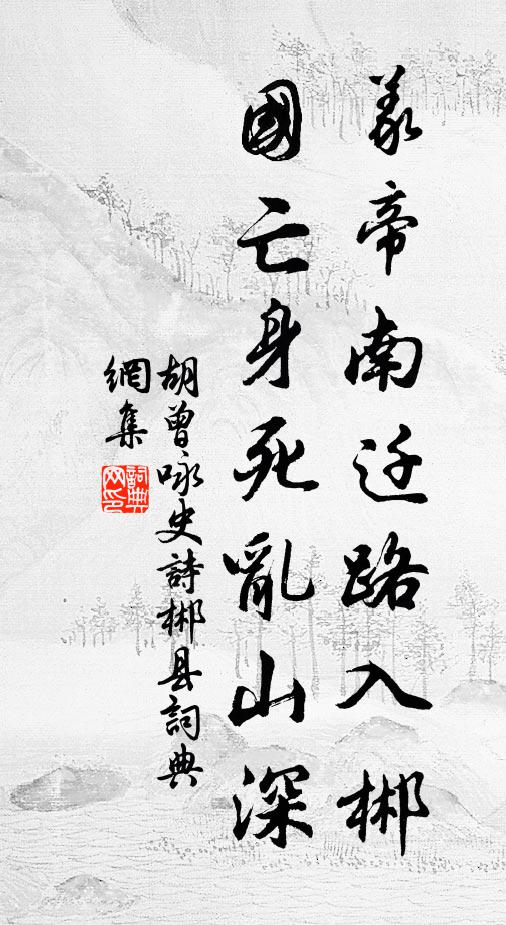 義帝南迁路入郴
國亡身死亂山深
胡曾咏史詩郴县詞典
網集
詞典
网印